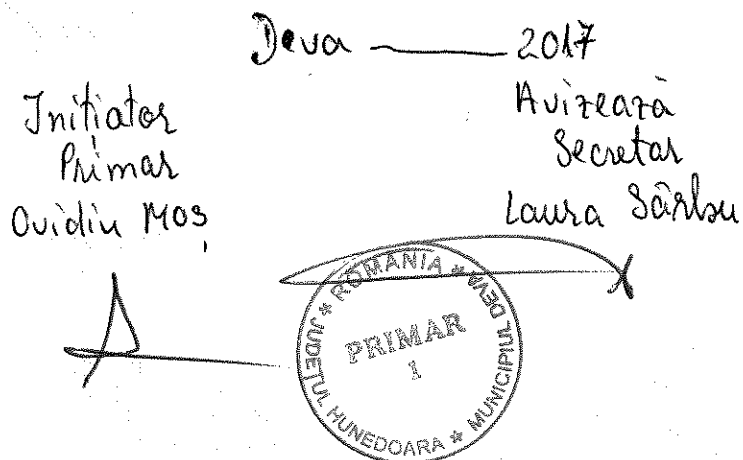 Deva ______ 2017
Inițiator
Primar
Ovidiu Moș
Avizează
Secretar
Laura Sârbu
ROMANIA * JUDEȚUL HUNEDOARA * MUNICIPIUL DEVA *
PRIMAR
1